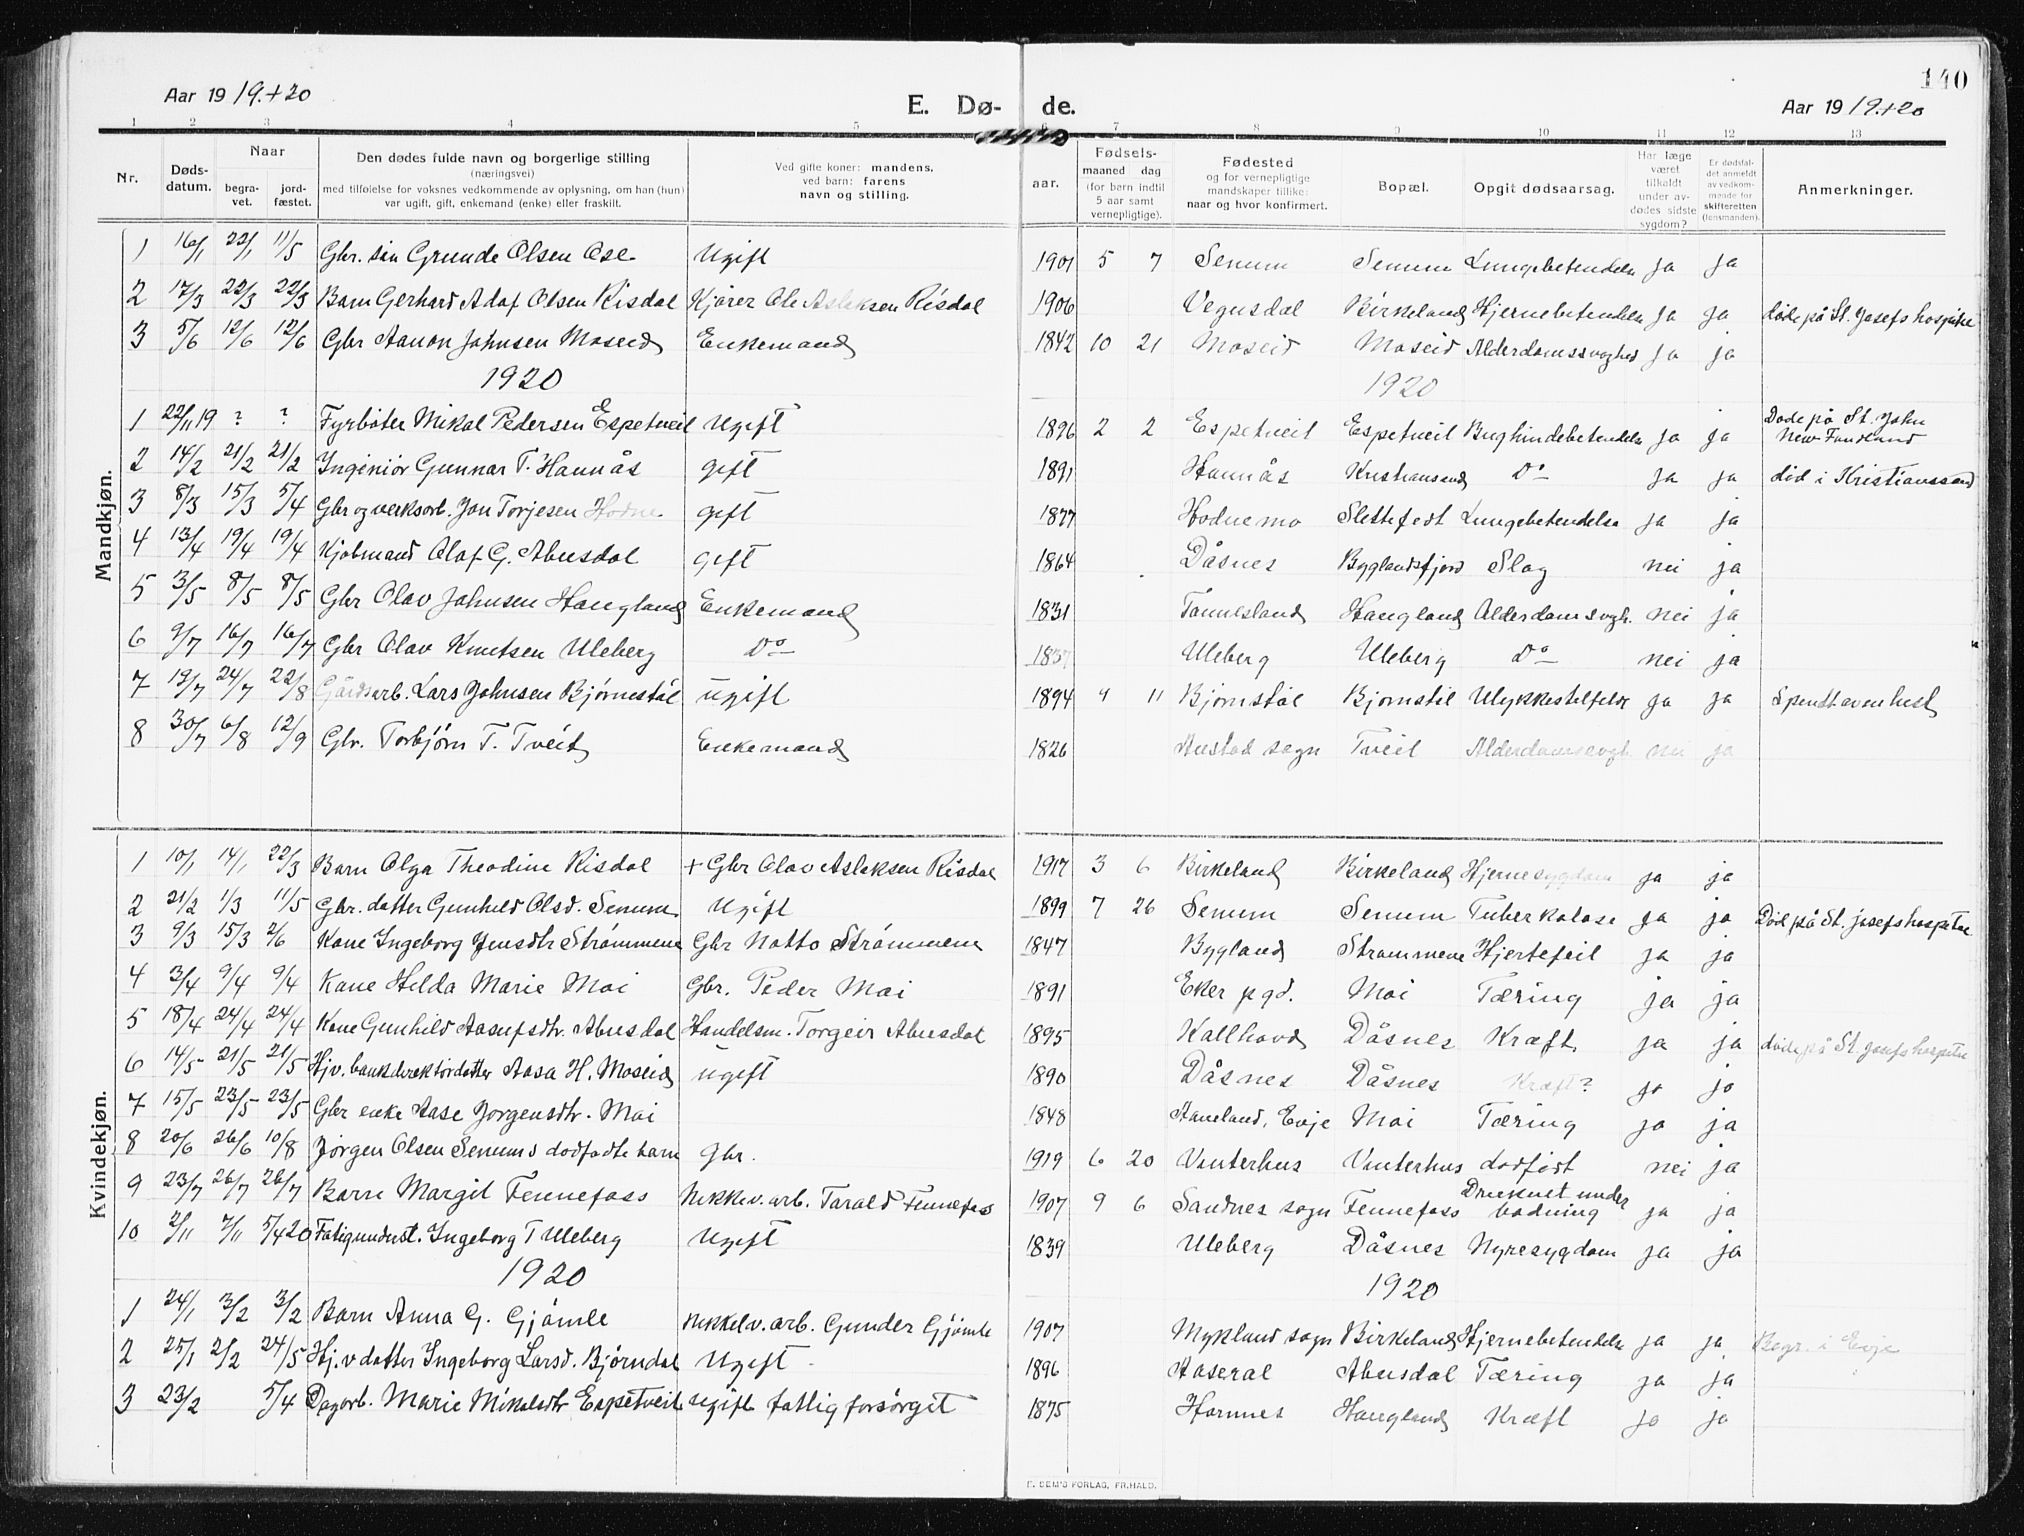 140
Aar 1919.+20
E. Dø- de.
Aar 1919.+20
1 2 3 4 5 6 7 8 9 10 11 12 13
Nr. Døds-datum. Naar begra-vet. jord-fæstet. Den dødes fulde navn og borgerlige stilling (næringsvei) med tilføielse for voksnes vedkommende av oplysning, om han (hun) var ugift, gift, enkemand (enke) eller fraskilt. Ved gifte koner: mandens, ved barn: farens navn og stilling. Fødsels- aar. maaned dag (for barn indtil 5 aar samt vernepligtige). Fødested og for vernepligtige mandskaper tillike: naar og hvor konfirmert. Bopæl. Opgit dødsaarsag. Har læge været tilkaldt under av-dødes sidste sygdom? Er dødsfal-det anmeldt av vedkom-mende for skifteretten (lensmanden). Anmerkninger.
Mandkjøn.
1 16/1 22/1 11/5 Gbr. søn Grunde Olsen Ose Ugift 1901 5 7 Senum Senum Lungebetendelse ja ja
2 17/3 22/3 22/3 Barn Gerhard Adof Olsen Risdal Kjører Ole Aslaksen Risdal 1906 Vegusdal Birkeland Hjernebetendelse ja ja døde på St. Josefs hospital
3 5/6 12/6 12/6 Gbr Aanon Johnsen Moseid Enkemand 1842 10 21 Moseid Moseid Alderdomssvaghed ja ja
1920 1920
1 22/11 19 ? ? Fyrbøter Mikal Pedersen Espetveit Ugift 1896 2 2 Espetveit Espetveit Bughindebetendelse ja ja Døde på St. John New Fundland
2 14/2 21/2 21/2 Ingeniør Gunnar T. Hannås gift 1891 Hannås Kristiansand Do ja ja død i Kristianssand
3 8/3 15/3 5/4 Gbr og verksarb. Jon Torjesen Hodne gift 1877 Hodnemo Slettefedt Lungebetendelse ja ja
4 13/4 19/4 19/4 Kjøbmand Olaf G. Abusdal gift 1864 Dåsnes Byglandsfjord Slag nei ja
5 3/5 8/5 8/5 Gbr Olav Johnsen Haugland Enkemand 1831 Tonnesland Haugland Alderdomsvgh. nei ja
6 9/7 16/7 16/7 Gbr Olav Knutsen Uleberg Do 1837 Uleberg Uleberg Do nei ja
7 19/7 24/7 22/8 Gårdsarb. Lars Johnsen Bjørnestøl ugift 1894 4 11 Bjørnstøl Bjørnstøl Ulykkestilfelde ja ja Spendt av en hest
8 30/7 6/8 12/9 Gbr. Torbjørn T. Tveit Enkemand 1826 Austad sogn Tveit Alderdomsvgh nei ja
Kvindekjøn.
1 10/1 14/1 22/3 Barn Olga Theodine Risdal + Gbr Olav Aslaksen Risdal 1917 3 6 Birkeland Birkeland Hjernesygdom ja ja
2 21/2 1/3 11/5 Gbr. datter Gunhild Olsd. Senum Ugift 1899 7 26 Senum Senum Tuberkolose ja ja Död på St. josefs hospital
3 9/3 15/3 2/6 Kone Ingeborg Jensdtr Strømmene Gbr Notto Strømmene 1847 Bygland Strømmene Hjertefeil ja ja
4 3/4 9/4 9/4 Kone Helda Marie Moi Gbr. Peder Moi 1891 Eker pgd. Moi Tæring ja ja
5 18/4 24/4 24/4 Kone Gunhild Aasufsdtr. Abusdal Handelsm. Torgeir Abusdal 1895 Kallhovd Dåsnes Kræft ja ja døde på St. Josefs hospital
6 14/5 21/5 21/5 Hjv. bankdirektørdatter Aasa H. Moseid ugift 1890 Dåsnes Dåsnes Kræft? ja ja
7 15/5 23/5 23/5 Gbr enke Aase Jorgensdtr. Moi 1848 Haneland, Evje Moi Tæring ja ja
8 20/6 26/6 10/8 Jørgen Olsen Senums dødfødte barn gbr. 1919 6 20 Vinterhus Vinterhus dødfødt nei ja
9 23/7 26/7 26/7 Barn Margit Fennefoss Nikkelv. arb. Tarald Fennefoss 1907 9 6 Sandnes sogn Fennefoss Druknet under badning ja ja
10 2/11 7/11 5/4 20 Fatigunderst. Ingeborg T Uleberg Ugift 1839 Uleberg Dåsnes Nyresygdom ja ja
1920 1920
1 24/1 3/2 3/2 Barn Anna G. Gjømle Nikkelv. arb. Gunder Gjømle 1907 Mykland sogn Birkeland Hjernebetendelse ja ja Begr. i Evje
2 25/1 2/2 24/5 Hj. v datter Ingeborg Larsd. Bjørndal Ugift 1896 Aaseral Abusdal Tæring ja ja
3 23/2 5/4 Dagarb. Marie Mikalsdtr Espetveit ugift fattigforsørget 1875 Hornnes Haugland Kræft ja ja
E. SEM'S FORLAG, FR.HALD.